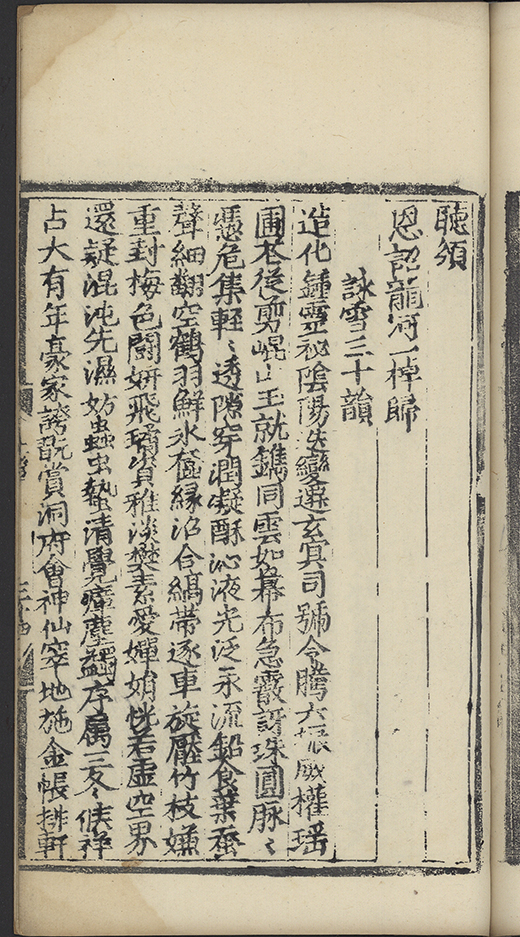 聽須
恩詔龍河一棹歸
詠雪三十韻
造化鍾靈祕陰陽迭變遷玄冥司號令騰六振威權瑶
圃花從剪崐山玉就鐫同雲如幕布急霰訝珠圓脉〻
憑危集輕〻透隙穿潤凝酥沁液光泛汞流鉛食葉蚕
聲細翻空鶴羽鮮氷奩緣沼合縞帶逐車旋壓竹枝嫌
重封梅色鬪妍飛瓊資雅淡樊素愛嬋娟恍若虛空界
還疑混沌先濕妨蟲蟄清覺瘴塵蠲序属三冬候祥
占大有年豪家誇翫賞洞府會神仙窣地施金帳排軒